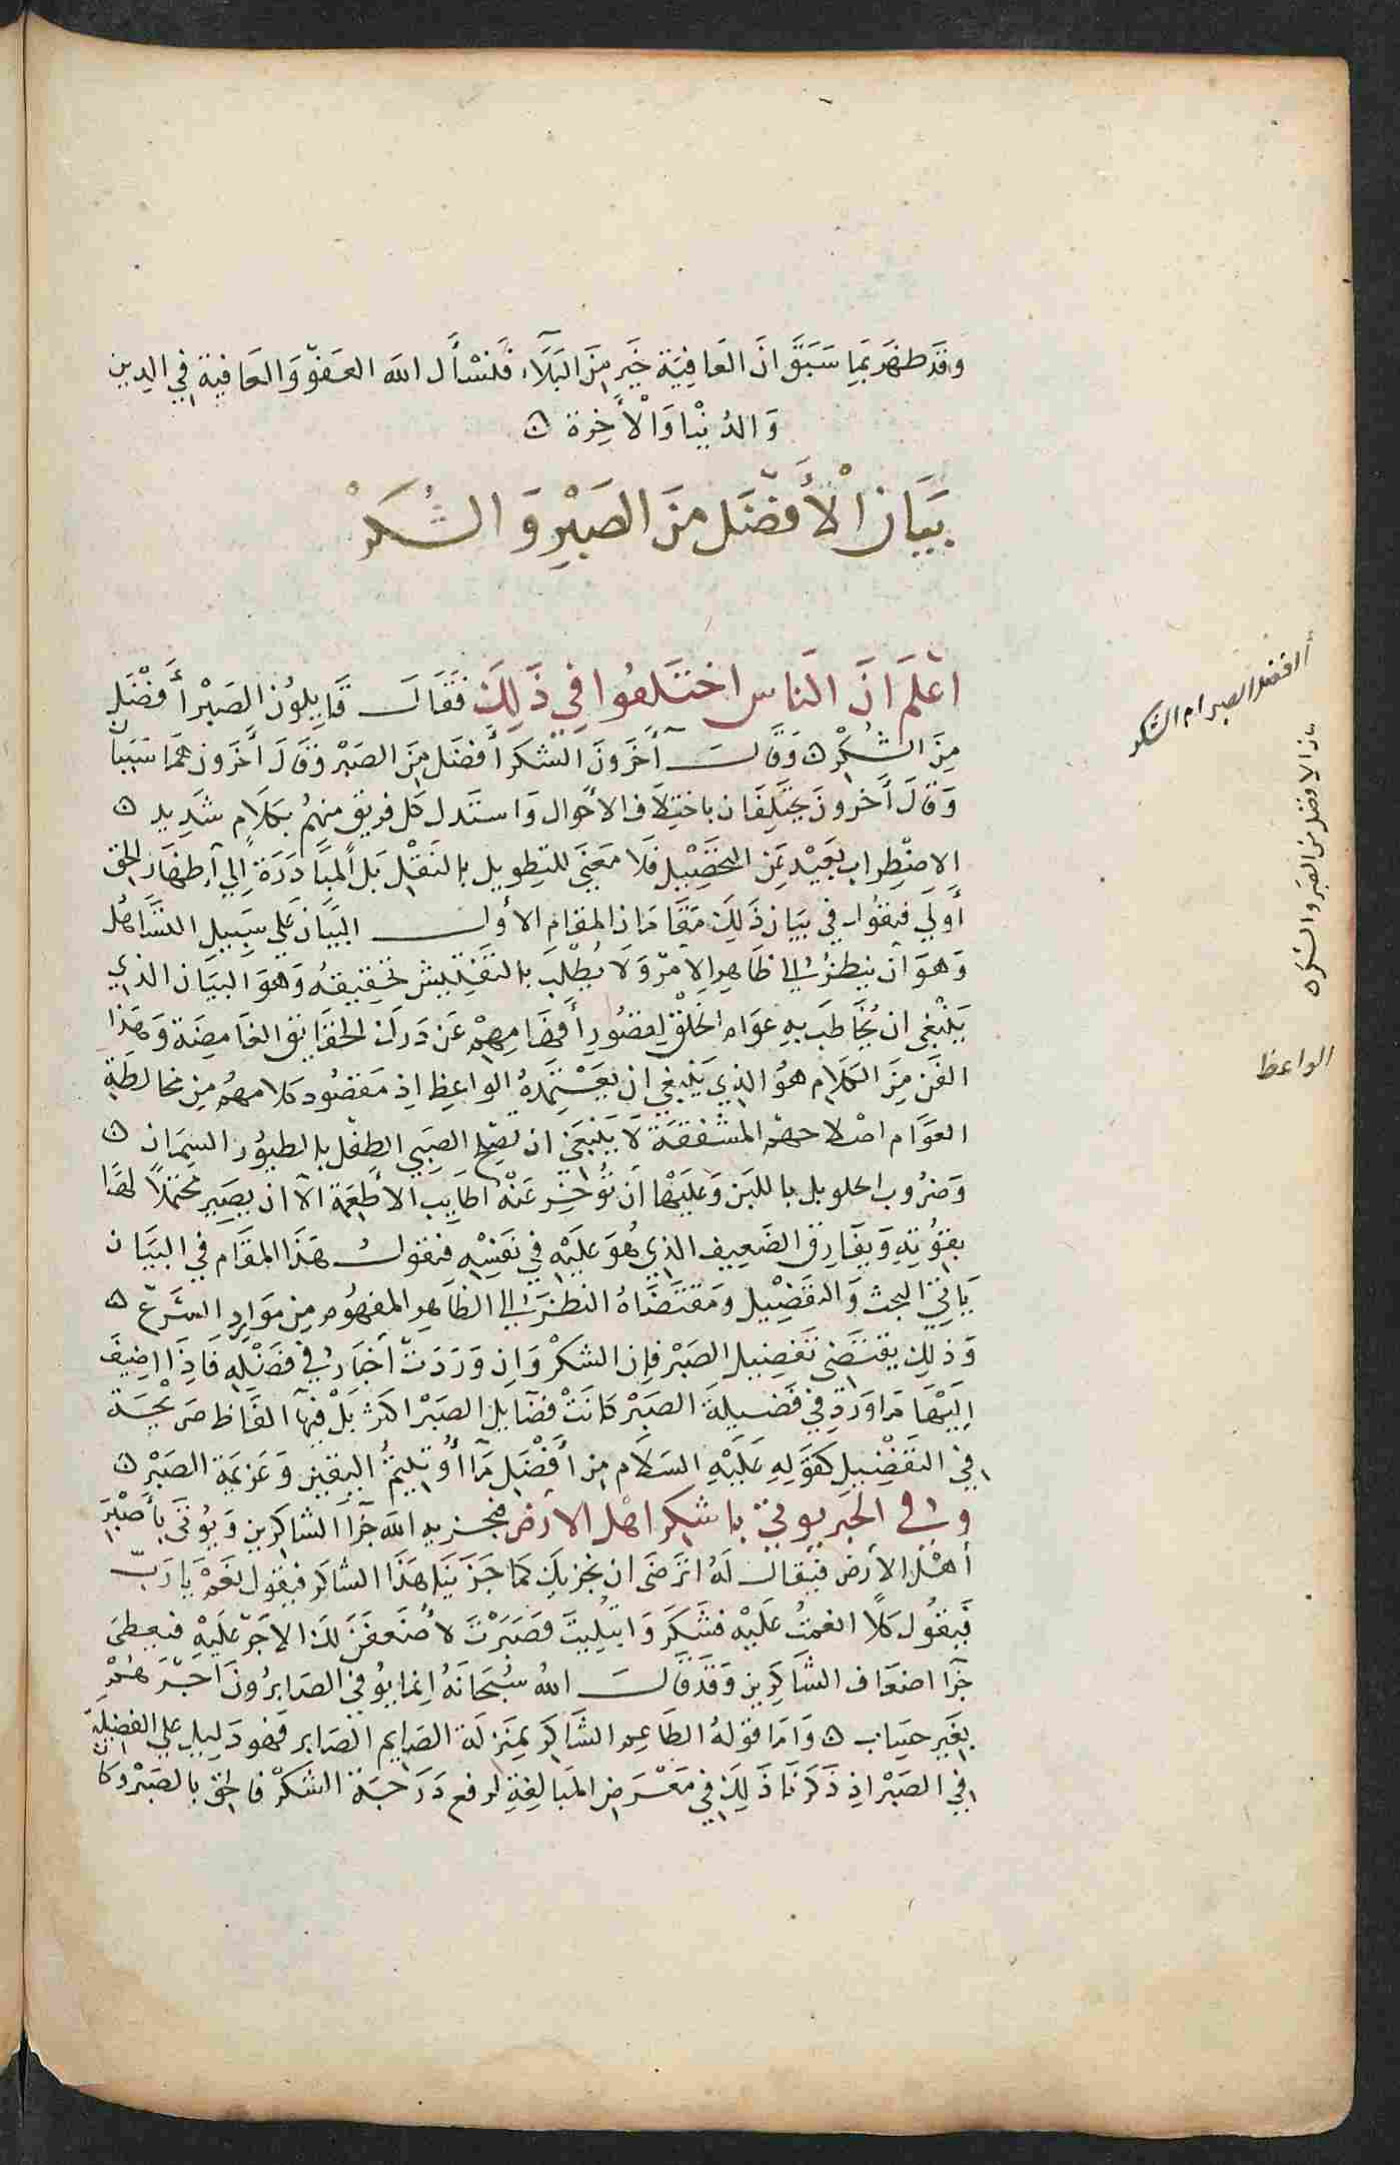 وقد ظهر بما سبق ان العافية خير من البلاء فنسأل الله العفو والعافية في الدين
والدنيا والأخرة ه
بيان الأفضل من الصبر والشكر
اعلم ان الناس اختلفوا في ذلك فقال قايلون الصبر أفضل
من الشكر ه وقال آخرون الشكر أفضل من الصبر وقال أخرون هما سيان
وقال أخرون يختلفان باختلاف الاحوال واستدل كل فريق منهم بكلام شديد ه
الاضطراب بعيد عن التحصيل فلا معنى للتطويل بالنقل بل المبادرة إلي إظهار الحق
أولي فنقول في بيان ذلك مقامان المقام الأول البيان علي سبيل التساهل
وهو ان ينظر الى ظاهر الامر ولا يطلب بالتفتيش تحقيقه وهو البيان الذي
ينبغي ان يخاطب به عوام الخلق لقصور أفهامهم عن درك الحقايق الغامضة وهذا
الفن من الكلام هو الذي ينبغي ان يعتمده الواعظ اذ مقصود كلامهم من مخالطة
العوام اصلاحهم المشفقة لا ينبغي ان تصلح الصبي الطفل بالطيور السمان ه
وضروب الحلو بل باللبن وعليها ان تؤخر عنه اطايب الأطعمة الا ان يصير محتملا لها
بقوته ويفارق الضعيف الذي هو عليه في نفسه فنقول هذا المقام في البيان
يأتي البحث والتفصيل ومقتضاه النظر الى الظاهر المفهوم من موارد الشرع ه
وذلك يقتضي تفضيل الصبر فإن الشكر وان وردت أخبار في فضله فاذا اضيف
اليها ما ورد في فضيلة الصبر كانت فضايل الصبر اكثر بل فيها الفاظ صريحة
في التفضيل كقوله عليه السلام من أفضل ما أوتيتم اليقين وعزيمة الصبر ه
وفي الخبر يوتي باشكر اهل الارض فيجزيه الله جزآ الشاكرين ويؤتى بأصبر
أهل الأرض فيقال له اترضى ان نجزيك كما جزينا هذا الشاكر فيقول نعم يا رب
فيقول كلا انعمت عليه فشكر وابتليت فصبرت لأضعفن لك الاجر عليه فيعطى
جزآ اضعاف الشاكرين وقد قال الله سبحانه إنما يوفى الصابرون اجرهم
بغير حساب ه واما قوله الطاعم الشاكر بمنزلة الصايم الصابر فهو دليل على الفضيلة
في الصبر اذ ذكرنا ذلك في معرض المبالغة لرفع درجة الشكر فالحق بالصبر وكان
أافضل الصبر ام الشكر
بيان الافضل من الصبر والشكر ه
الواعظ